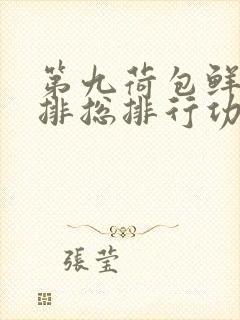 第九荷包鲜
排总排行功
張莹